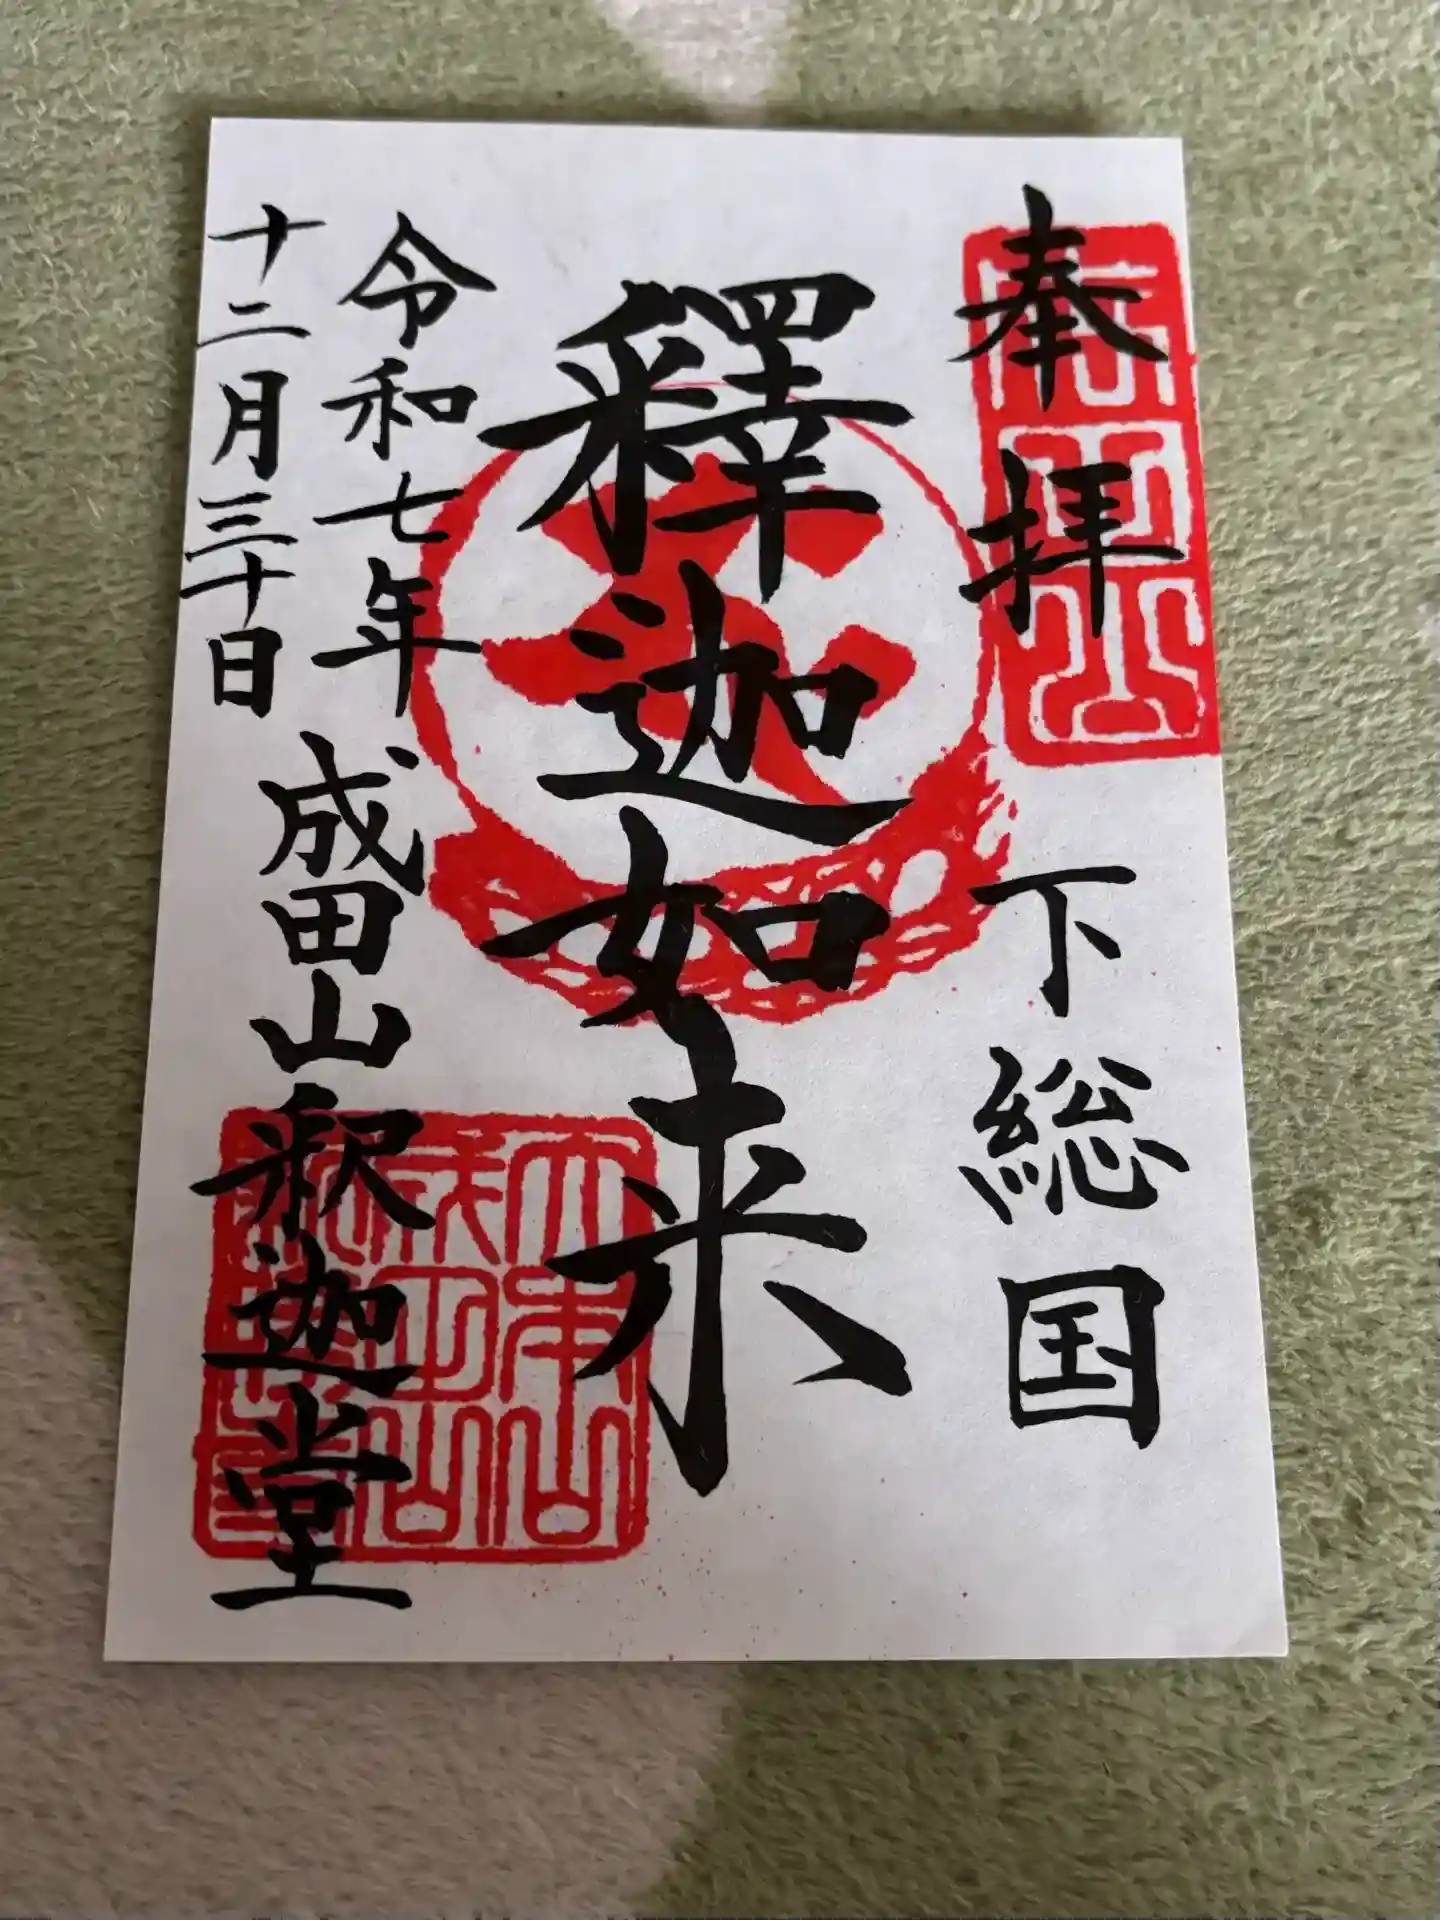 奉拝
下総国
釋迦如来
令和七年
十二月三十日
成田山釈迦堂
大本山
成田山